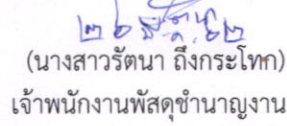 ๒๖ ธ.ค. ๖๒
(นางสาวรัตนา ถึงกระโทก)
เจ้าพนักงานพัสดุชำนาญงาน